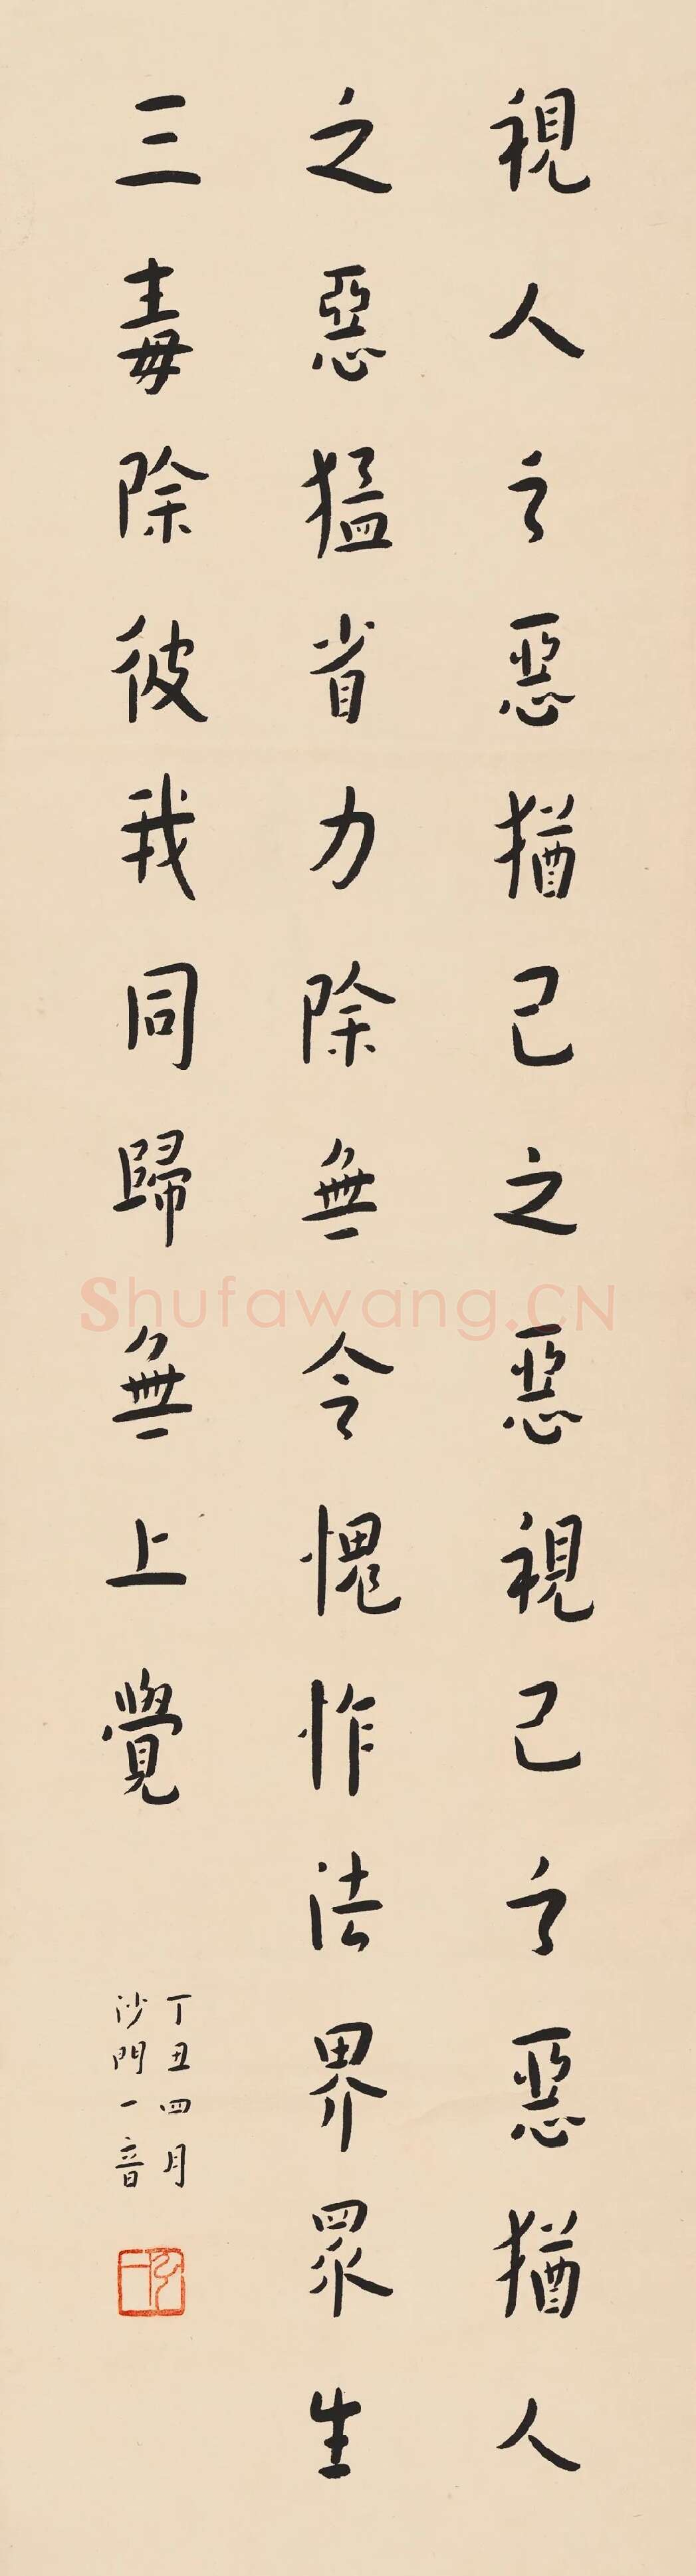 視人之惡猶己之惡視己之惡猶人
之惡猛省力除無令愧怍法界眾生
三毒除彼我同歸無上覺
丁丑四月
沙門一音
Shufawang.CN